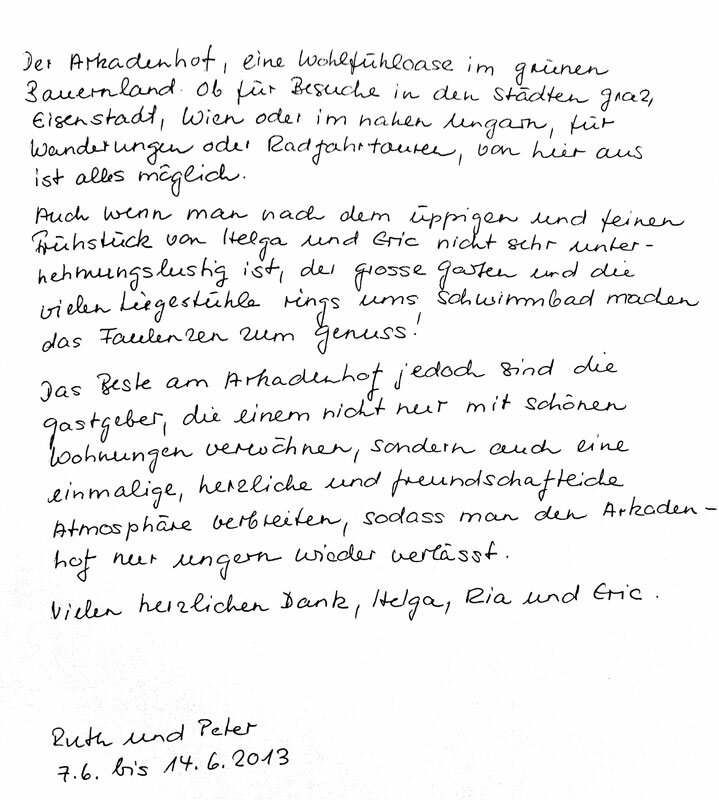 Der Arkadenhof, eine Wohlfühloase im grünen
Bauernland. Ob für Besuche in den Städten Graz,
Eisenstadt, Wien oder im nahen Ungarn, für
Wanderungen oder Radfahrtouren, von hier aus
ist alles möglich.
Auch wenn man nach dem üppigen und feinen
Frühstück von Helga und Eric nicht sehr unter-
nehmungslustig ist, der grosse Garten und die
vielen Liegestühle rings ums Schwimmbad machen
das Faulenzen zum Genuss!
Das Beste am Arkadenhof jedoch sind die
Gastgeber, die einem nicht nur mit schönen
Wohnungen verwöhnen, sondern auch eine
einmalige, herzliche und freundschaftliche
Atmosphäre verbreiten, sodass man den Arkaden-
hof nur ungern wieder verlässt.
Vielen herzlichen Dank, Helga, Ria und Eric.
Ruth und Peter
7.6. bis 14.6.2013